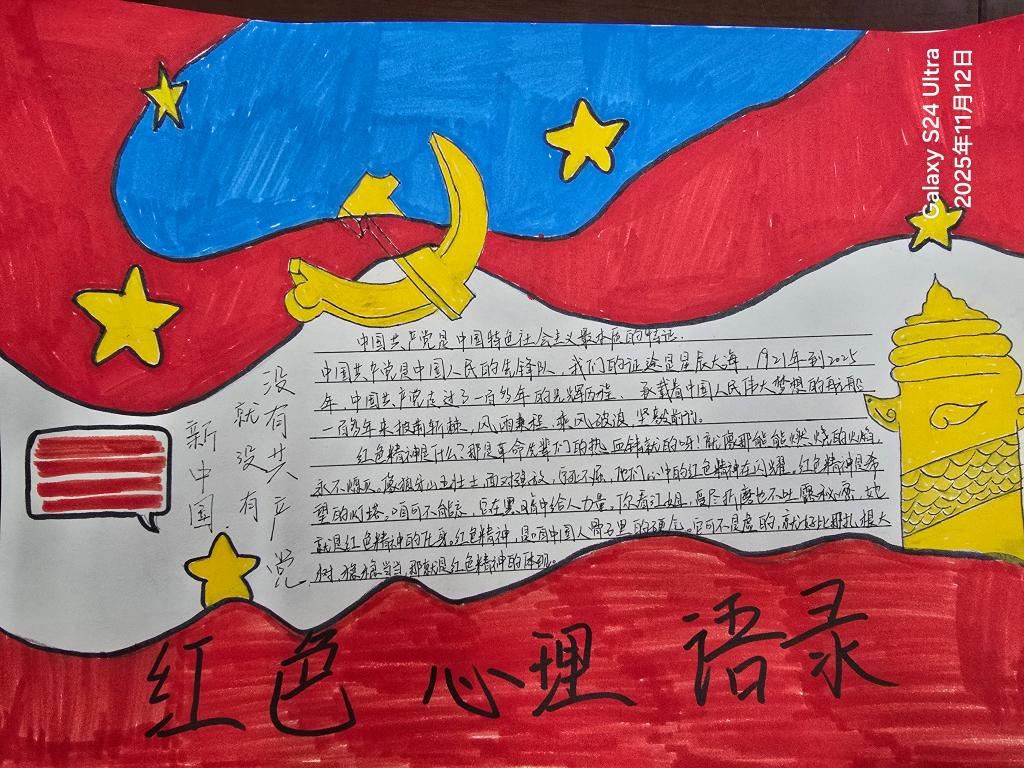 Galaxy S24 Ultra
2025年11月12日
中国共产党是中国特色社会主义最本质的特征.
中国共产党是中国人民的先锋队、我们的征途是星辰大海,1921年到2025
年,中国共产党走过了一百多年的光辉历程、承载着中国人民伟大梦想的再
一百多年来披荆斩棘,风雨兼程、乘风破浪,坚毅前行。
红色精神是什么?那是革命先辈们的热血铸就的呀!就像那能燃烧的火焰,
永不熄灭,像狼牙山五壮士,面对强敌,宁死不屈,他们心中的红色精神在闪耀。红色精神是希
望的灯塔。咱可不能忘,它在黑暗中给人力量。你看江姐,受尽折磨也不吐露秘密,她
就是红色精神的化身。红色精神,是咱中国人骨子里的硬气,它可不是虚的,就好比那扎根大
树,稳稳当当,那就是红色精神的体现。
没有共产党
就没有
新中国.
红色心理语录